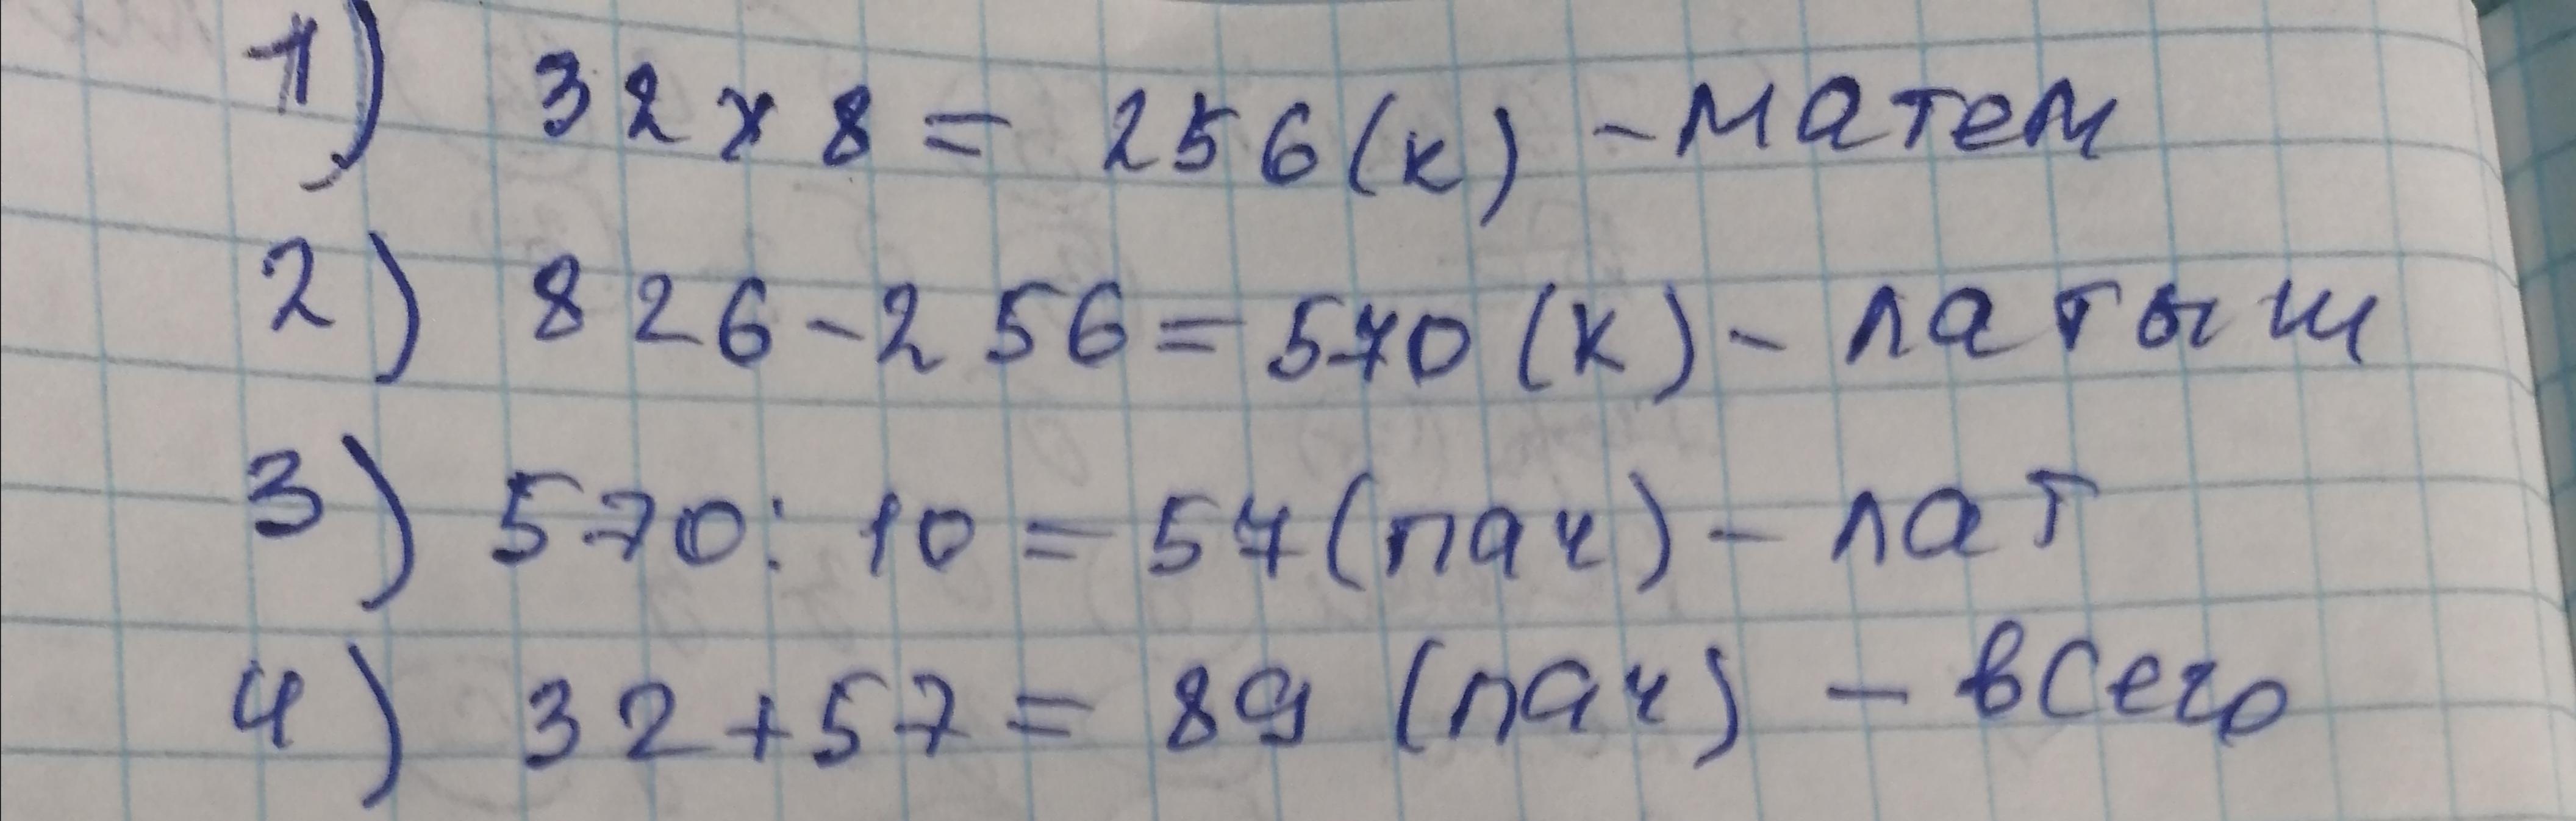 1) 32 x 8 = 256 (к) - матем
2) 826 - 256 = 570 (к) - латыш
3) 570 : 10 = 57 (пач) - лат
4) 32 + 57 = 89 (пач) - всего